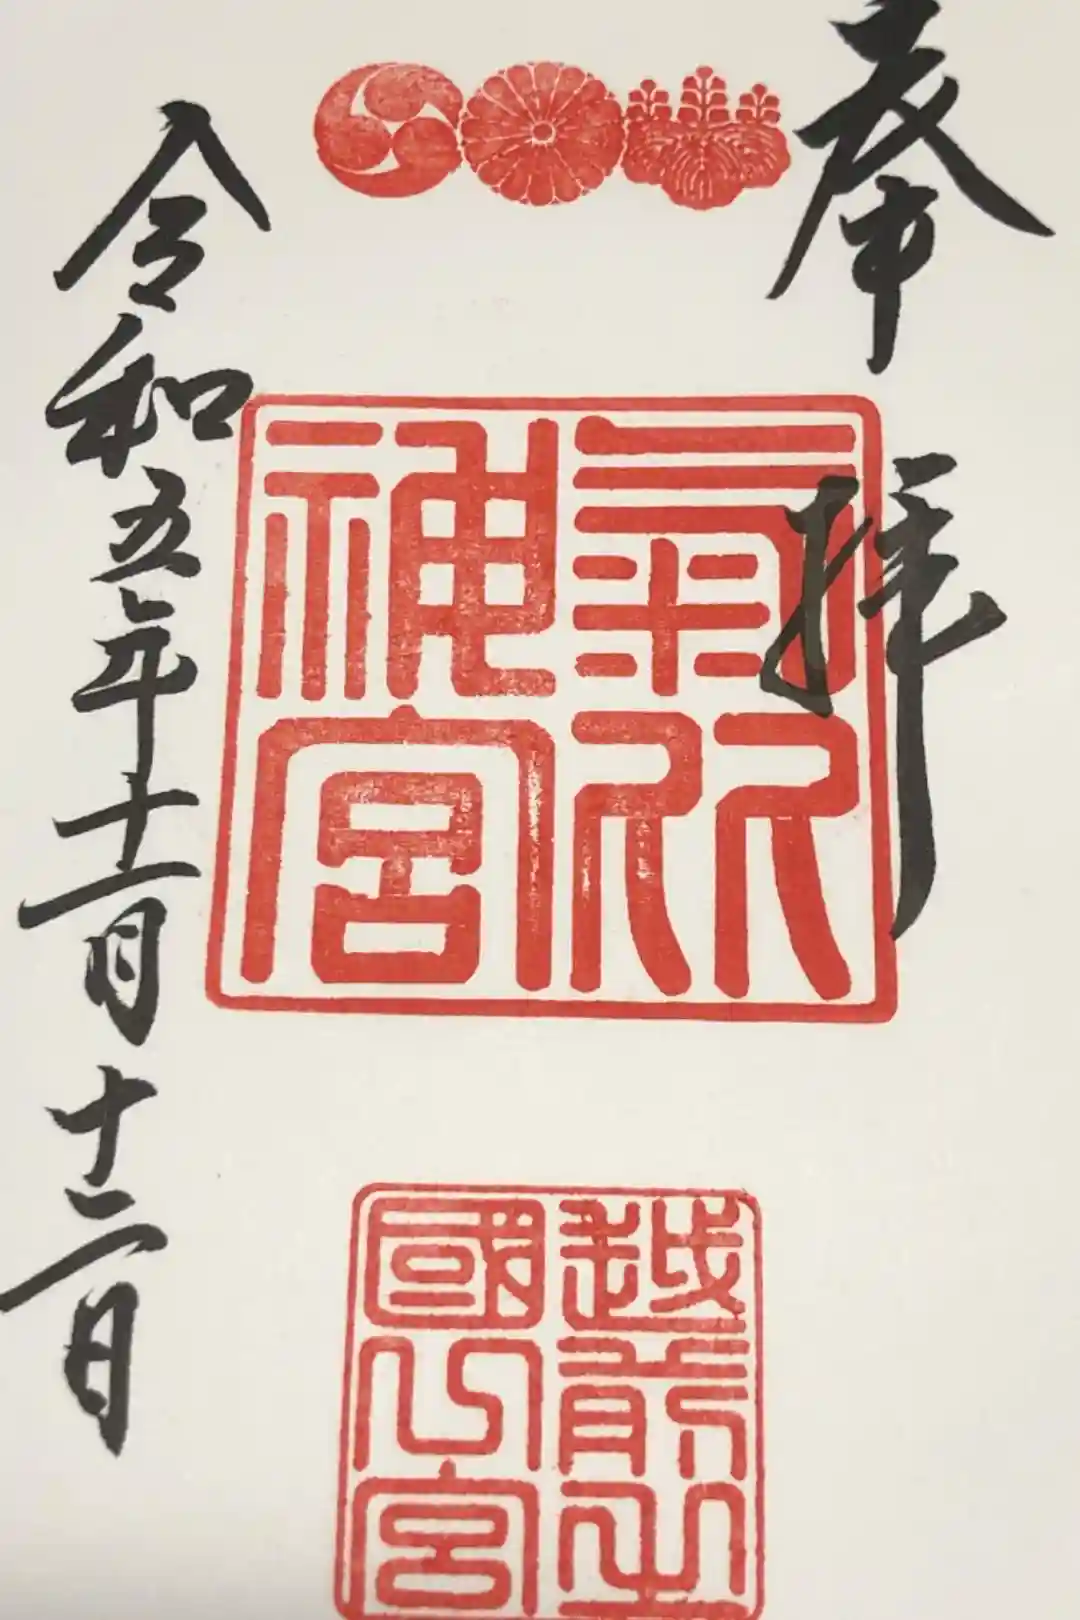 奉拝
氣比
神宮
越前之
國一宮
令和五年十一月十二日